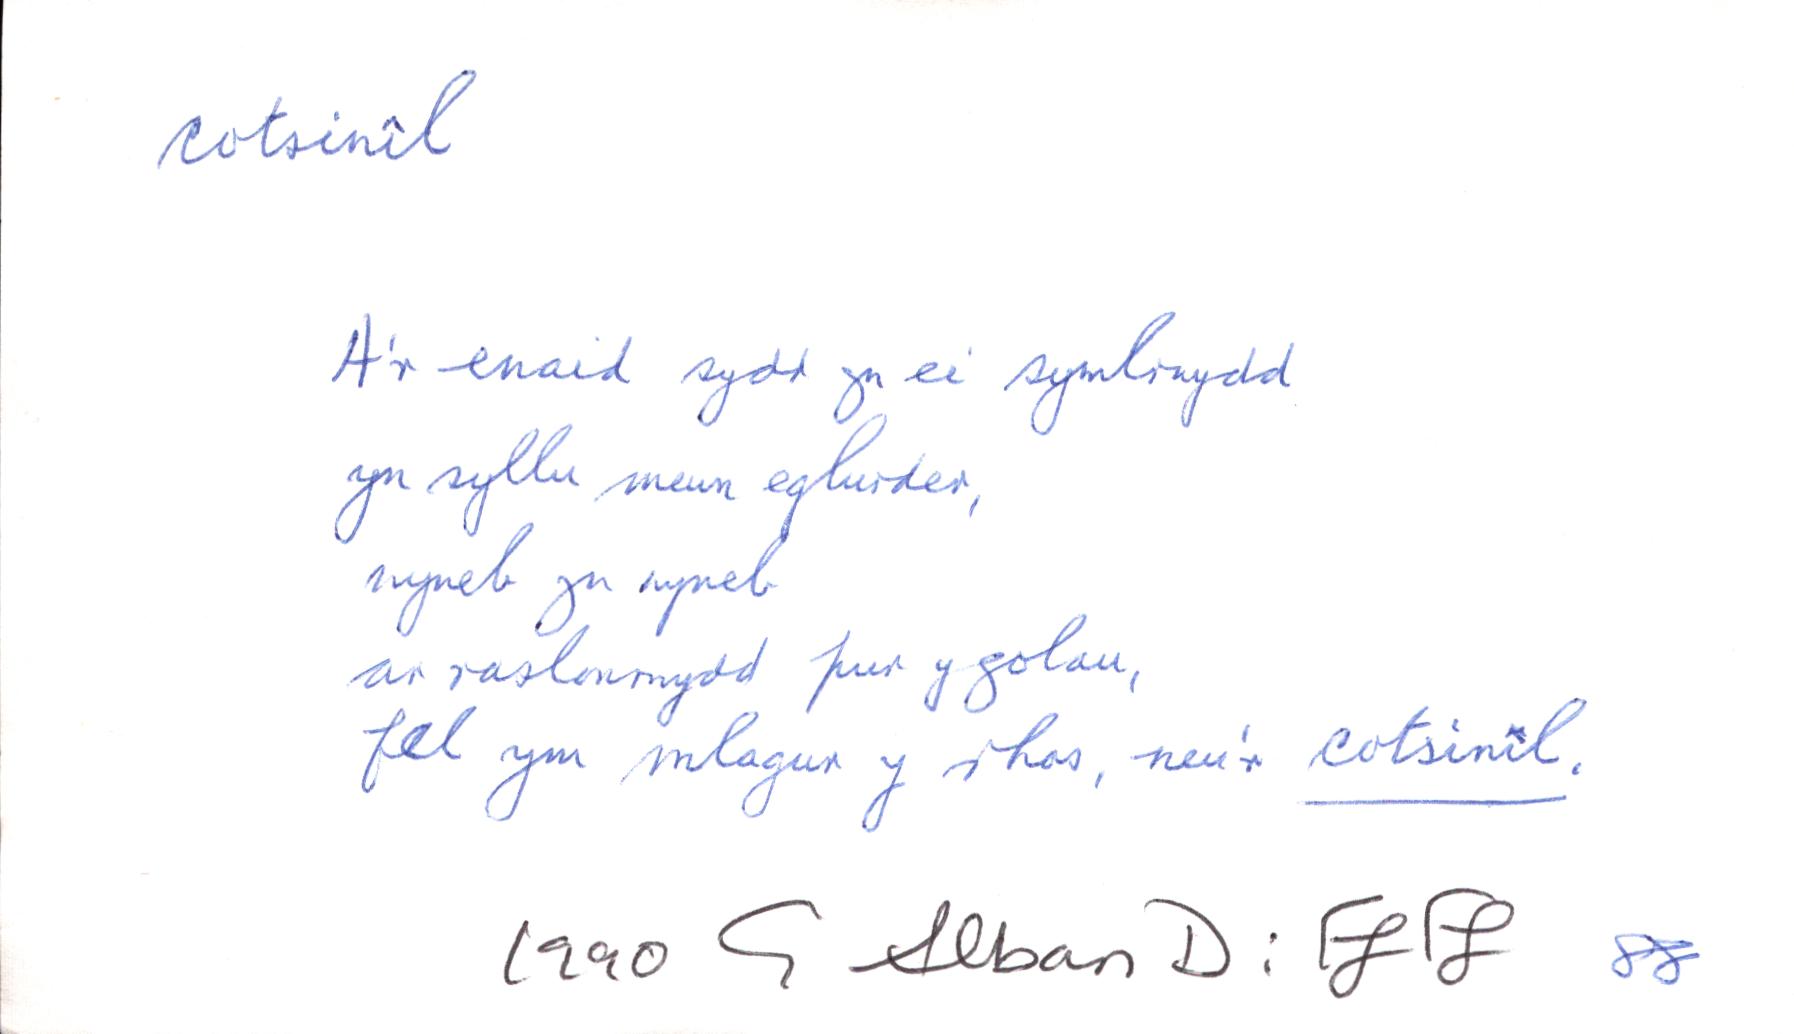 cotsinîl
A'r enaid sydd yn ei symlrwydd
yn syllu mewn eglurder,
wyneb yn wyneb
ar raslonrwydd pur y golau,
fel ym mlagur y rhos, neu'r cotsinîl.
1990 G Alban D: FfFf 88